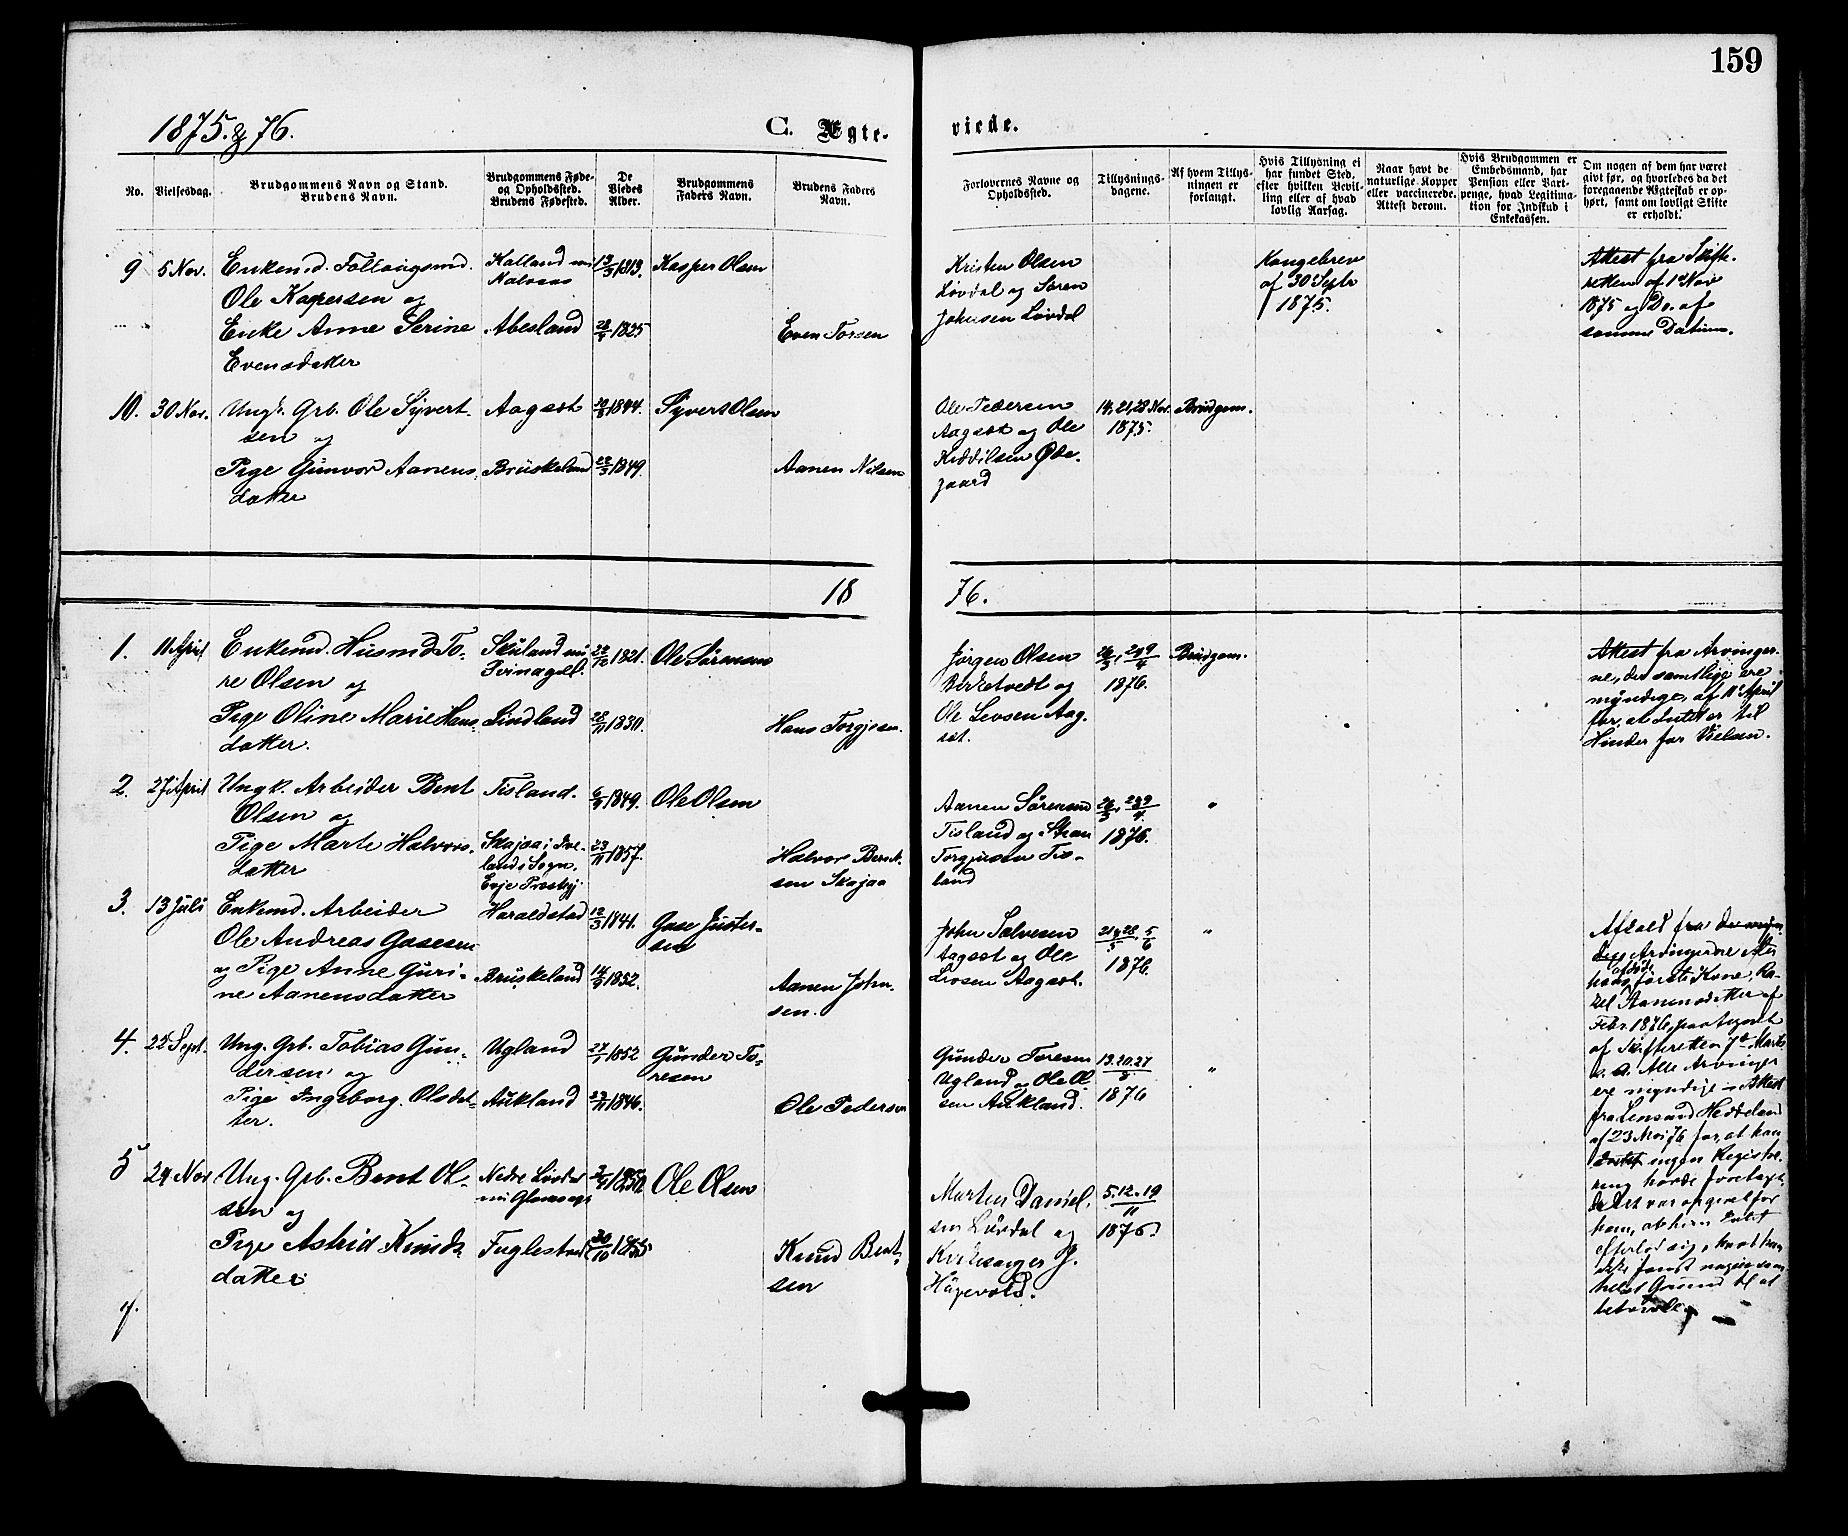 159
1875 & 76.
C. Ægte-
viede.
No.
Vielsesdag.
Brudgommens Navn og Stand.
Brudens Navn.
Brudgommens Føde-
og Opholdssted.
Brudens Fødested.
De
Viedes
Alder.
Brudgommens
Faders Navn.
Brudens Faders
Navn.
Forlovernes Navne og
Opholdssted.
Tillysnings-
dagene.
Af hvem Tillys-
ningen er
forlangt.
Hvis Tillysning ei
har fundet Sted,
efter hvilken Bevil-
ling eller af hvad
lovlig Aarsag.
Naar havt de
naturlige Kopper
eller vaccinerede.
Attest derom.
Hvis Brudgommen er
Embedsmand, har
Pension eller Vart-
penge, hvad Legitima-
tion for Indskud i
Enkekassen.
Om nogen af dem har været
givt før, og hvorledes da det
foregaaende Ægteskab er op-
hørt, samt om lovligt Skifte
er erholdt.
9 5 Nov.
Enkemd.
Ole Kaspersen og
Enke Anne Serine
Evensdatter
Abesland
1813.
1825
Kasper Olsen
Even Torsen
Kristen Olsen
Løvdal og Søren
Johnsen Løvdal
Kongebrev
af 30 Septb
1875.
Attest fra Skifte-
retten af 1ste Nov
1875 og Do. af
samme Datum.
10. 30 Nov.
Ungk. Grb. Ole Syvert-
sen og
Pige Gunvor Aanens
datter
Aagset
Bruskeland
1844.
1849.
Syvert Olsen
Aanen Nilsen
Ole Pedersen
Aagset og Ole
Keddilsen Øde-
gaard
14, 21, 28 Nov.
1875.
Brudgom.
18
76.
1. 11 April
Enkemd. Husmd To-
re Olsen og
Pige Oline Marie Hans
datter.
Lindland
22/10 1821.
28/11 1830.
Ole Sørensen
Hans Torgjesen.
Jørgen Olsen
Birketvedt og
Ole Levsen Aag-
set.
26/3, 2 og 9/4
1876.
Brudgom.
Attest fra Arvinger-
ne, der samtlige ere
myndige, af 11te April
for, at Intet er til
Hinder for Vielsen.
2. 27 April
Ungk. Arbeider Bent
Olsen og
Pige Marte Halvors-
datter
Tisland.
Skajaa i Ive-
lands Sogn,
Evje Præstgj.
1849.
23/11 1857.
Ole Olsen
Halvor Bernt-
sen Skajaa
Aanen Sørensen
Tisland og
Torgjusen Tis-
land
26/3, 2 & 9/4
1876.
"
3. 13 Juli
Enkemd. Arbeider
Ole Andreas Gasesen
og Pige Anne Guri-
ne Aanensdatter
Haraldstad
Bruskeland
1841.
1852.
Gase Juster-
sen
Aanen John-
sen.
John Salvesen
Aagset og Ole
Levsen Aagset.
21 & 28/5, 5/6
1876.
"
Afkald fra
Arvingerne efter
hans afdøde første Kone, Ra-
kel Aanensdatter af
Febr. 1876, paategnet
af Skifteretten 7de Marts
s. A. Alle Arvinger
ere myndige – Attest
fra Lensmd Heddeland
af 23 Mai 76 for, at han
ingen Registre-
ring havde foretaget
4. 22 Sept.
Ung. Grb. Tobias Gun-
dersen og
Pige Ingeborg Olsdat-
ter.
Ugland
Aukland
1852
1846.
Gunder To-
resen
Ole Pedersen
Gunder Toresen
Ugland og Ole Ol-
sen Aukland.
13. 20. 27/8
1876
"
5 24 Nov
Ung. Grb. Bent Ol-
sen og
Pige Astrid Knuds-
datter
Nedre Løvdal
Fuglestvedt
1850
20/10 1855
Ole Olsen
Knud Bent-
sen
Martin Daniel-
sen Løvdal og
Kirkesanger J.
Hägevold.
5. 12. 19/11
1876.